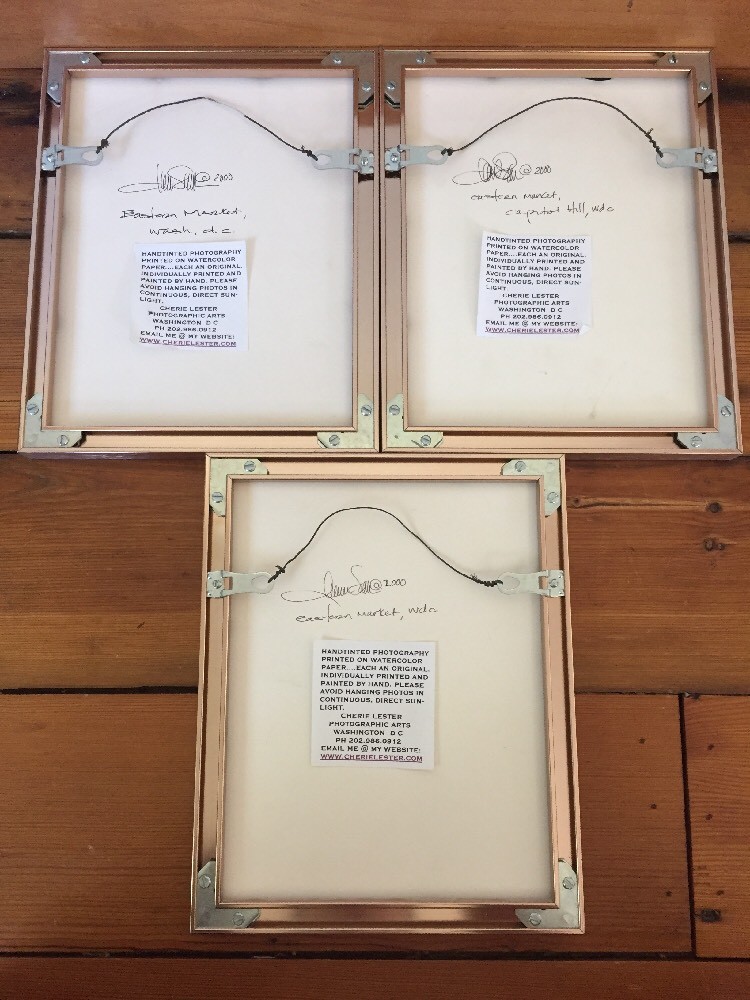 © 2000
Eastern Market,
Wash, d.c
HANDTINTED PHOTOGRAPHY
PRINTED ON WATERCOLOR
PAPER....EACH AN ORIGINAL.
INDIVIDUALLY PRINTED AND
PAINTED BY HAND. PLEASE
AVOID HANGING PHOTOS IN
CONTINUOUS, DIRECT SUN-
LIGHT.
CHERIE LESTER
PHOTOGRAPHIC ARTS
WASHINGTON D C
PH 202.986.0912
EMAIL ME @ MY WEBSITE:
WWW.CHERIELESTER.COM
© 2000
eastern market,
capitol Hill, wdc
HANDTINTED PHOTOGRAPHY
PRINTED ON WATERCOLOR
PAPER....EACH AN ORIGINAL.
INDIVIDUALLY PRINTED AND
PAINTED BY HAND. PLEASE
AVOID HANGING PHOTOS IN
CONTINUOUS, DIRECT SUN-
LIGHT.
CHERIE LESTER
PHOTOGRAPHIC ARTS
WASHINGTON D C
PH 202.986.0912
EMAIL ME @ MY WEBSITE:
WWW.CHERIELESTER.COM
© 2000
eastern market, wdc
HANDTINTED PHOTOGRAPHY
PRINTED ON WATERCOLOR
PAPER....EACH AN ORIGINAL.
INDIVIDUALLY PRINTED AND
PAINTED BY HAND. PLEASE
AVOID HANGING PHOTOS IN
CONTINUOUS, DIRECT SUN-
LIGHT.
CHERIE LESTER
PHOTOGRAPHIC ARTS
WASHINGTON D C
PH 202.986.0912
EMAIL ME @ MY WEBSITE:
WWW.CHERIELESTER.COM